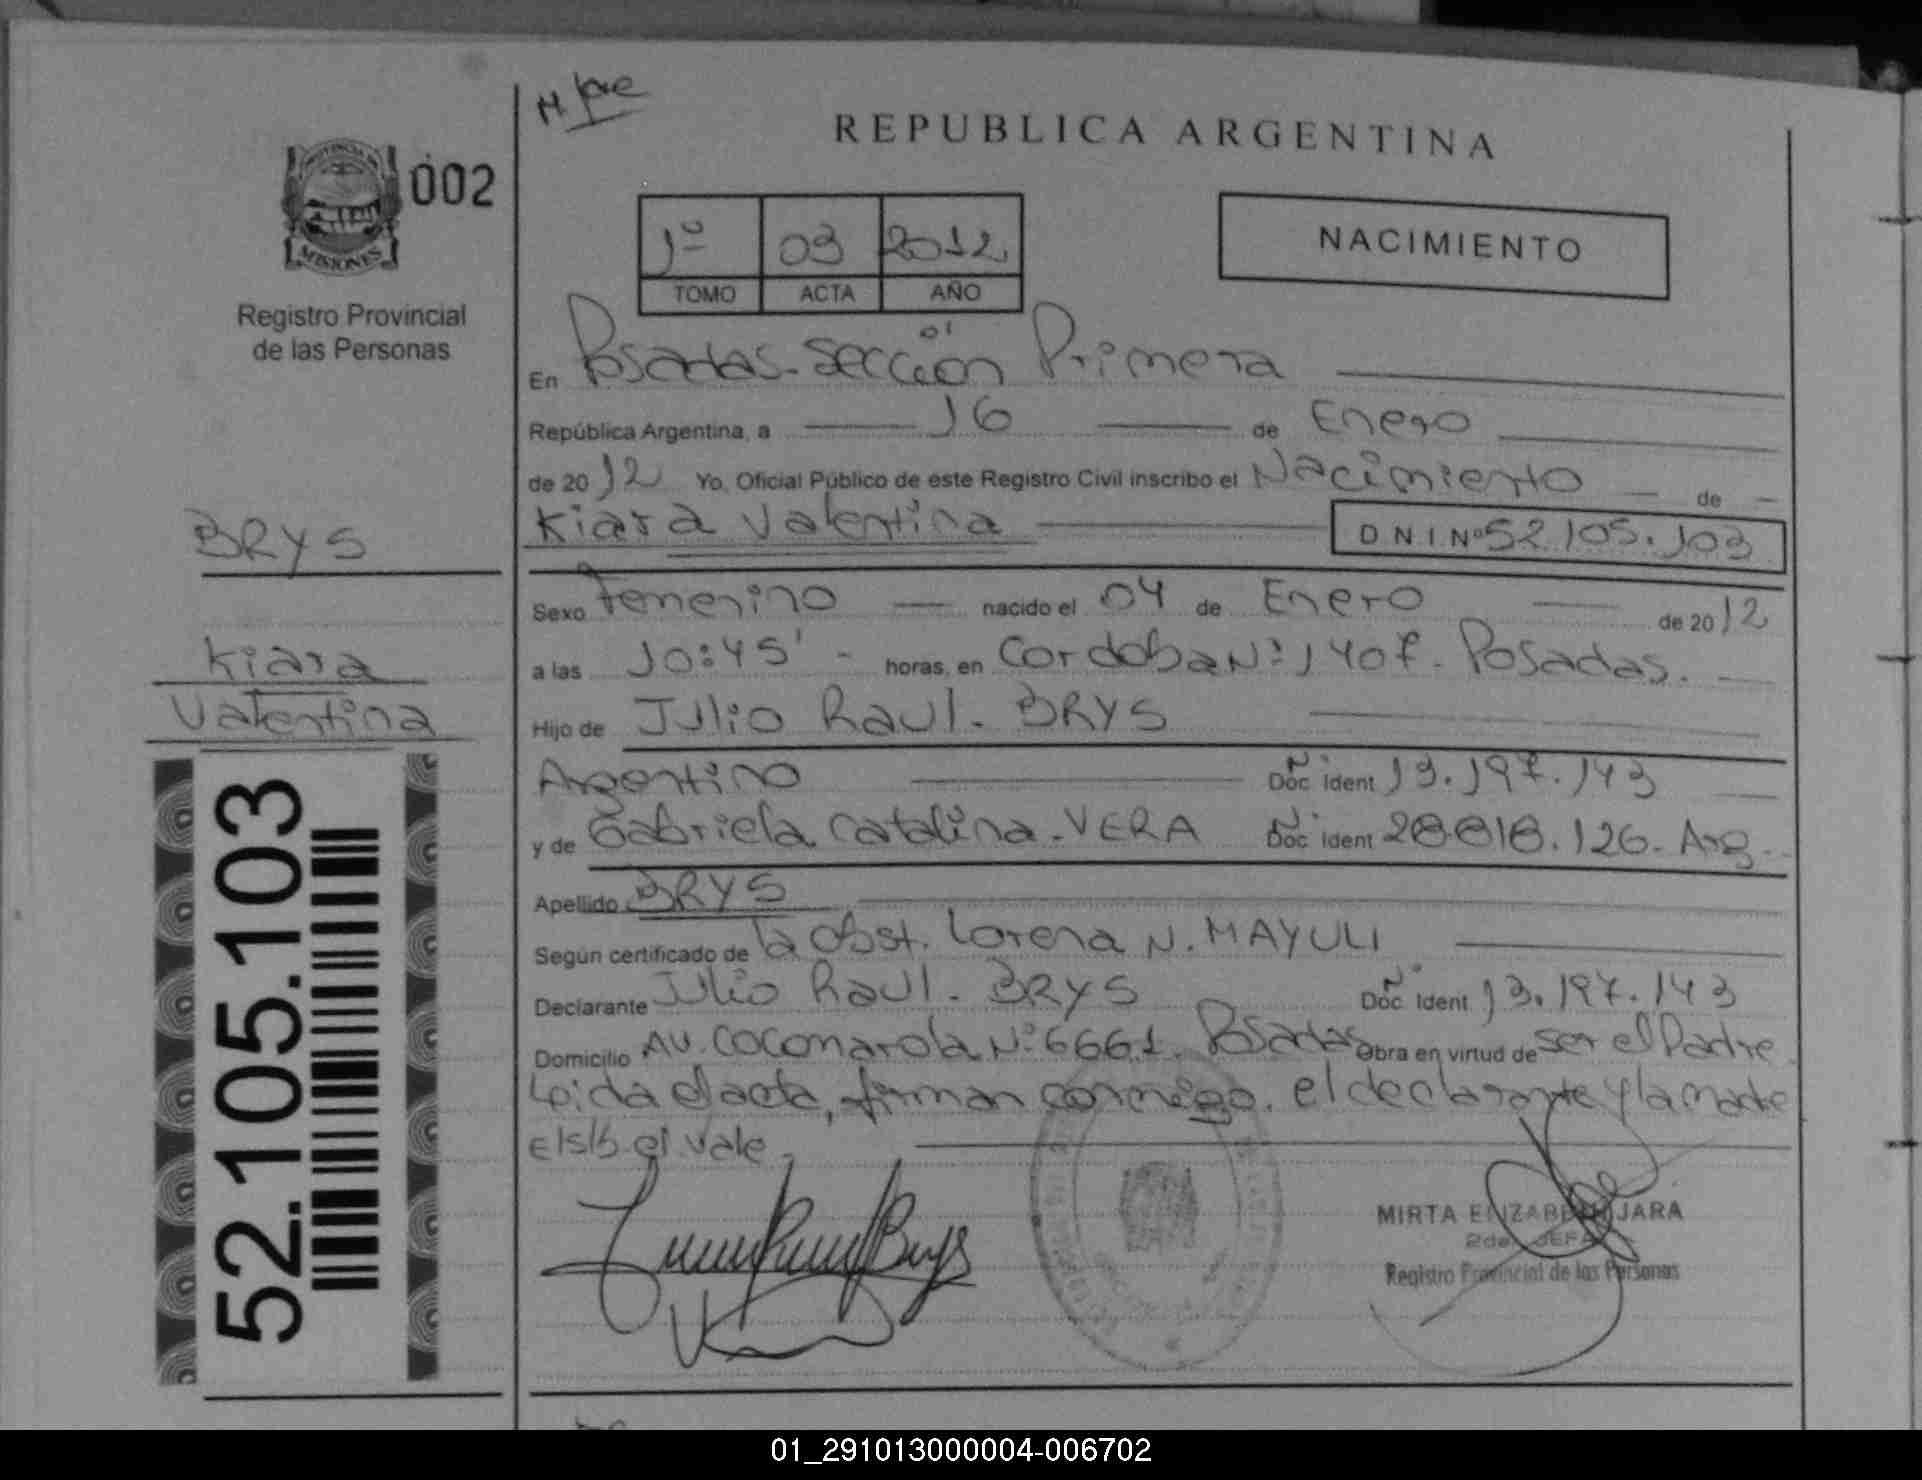 M. Jose
REPUBLICA ARGENTINA
PROVINCIA DE
MISIONES
002
Registro Provincial
de las Personas
1º 03 2012
TOMO ACTA AÑO
NACIMIENTO
En Posadas - Sección Primera
01
República Argentina, a 16 de Enero
de 2012 Yo, Oficial Público de este Registro Civil inscribo el Nacimiento de
Kiara Valentina DNI Nº 52.105.103
BRYS
Kiara
Valentina
52.105.103
Sexo Femenino nacido el 04 de Enero de 2012
a las 10:45' - horas, en Cordoba Nº: 1407 - Posadas.
Hijo de Julio Raul - BRYS
Argentino Doc Nº Ident 13.197.143
y de Gabriela Catalina - VERA Doc Nº Ident 28.818.126 - Arg -
Apellido BRYS
Según certificado de la obst. Lorena N. MAYULI
Declarante Julio Raul - BRYS Doc Nº Ident 13.197.143
Domicilio AV. Cocomarola Nº: 6661. Posadas Obra en virtud de ser el Padre.
Leida el acta, firman conmigo, el declarante y la madre
E/s/b. 01 vale -
MIRTA ELIZABETH JARA
2da. JEFA
Registro Provincial de las Personas
01_291013000004-006702